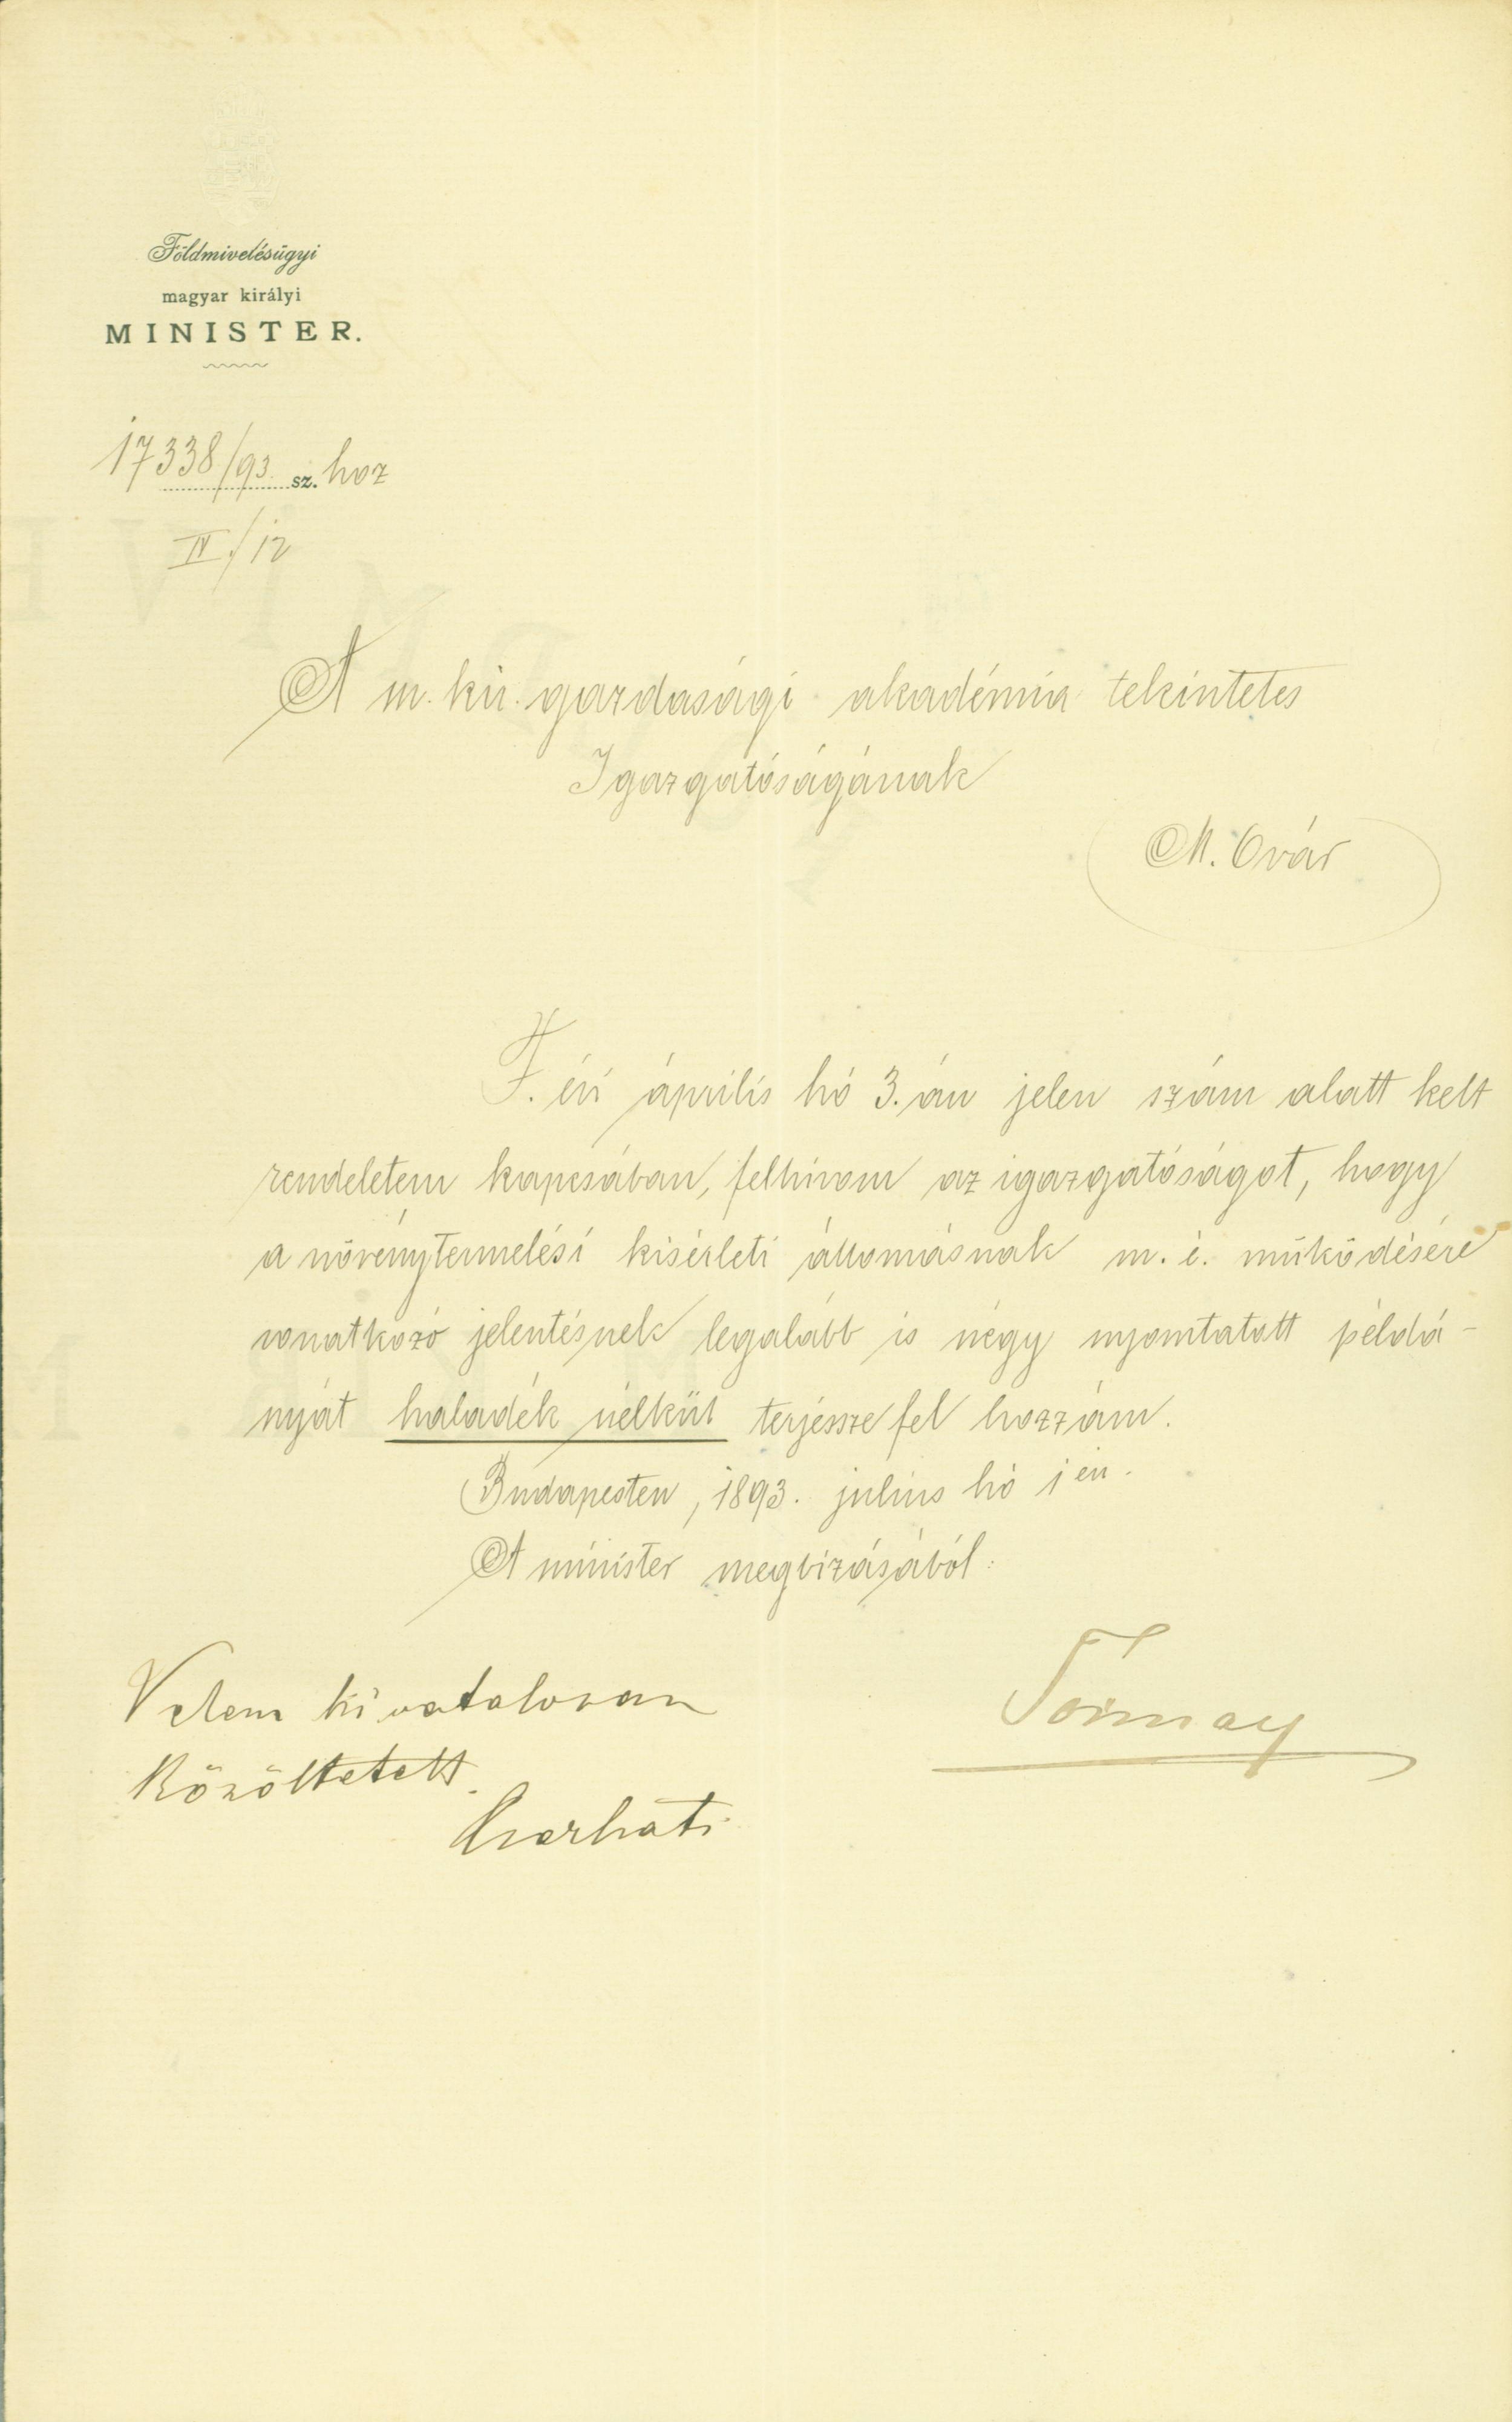 Földmivelésügyi
magyar királyi
MINISTER.
17338/93. sz. hoz
IV./12
A m. kir. gazdasági akadémia tekintetes
Igazgatóságának
M. Óvár
F. évi április hó 3.án jelen szám alatt kelt
rendeletem kapcsában, felhivom az igazgatóságot, hogy
a növénytermelési kisérleti állomásnak m. é. működésére
vonatkozó jelentésnek legalább is négy nyomtatott példá-
nyát haladék nélkül terjessze fel hozzám.
Budapesten, 1893. julius hó 1 én.
A minister megbizásából:
Velem hivatalosan
közöltetett.
Cserháti
Tormay